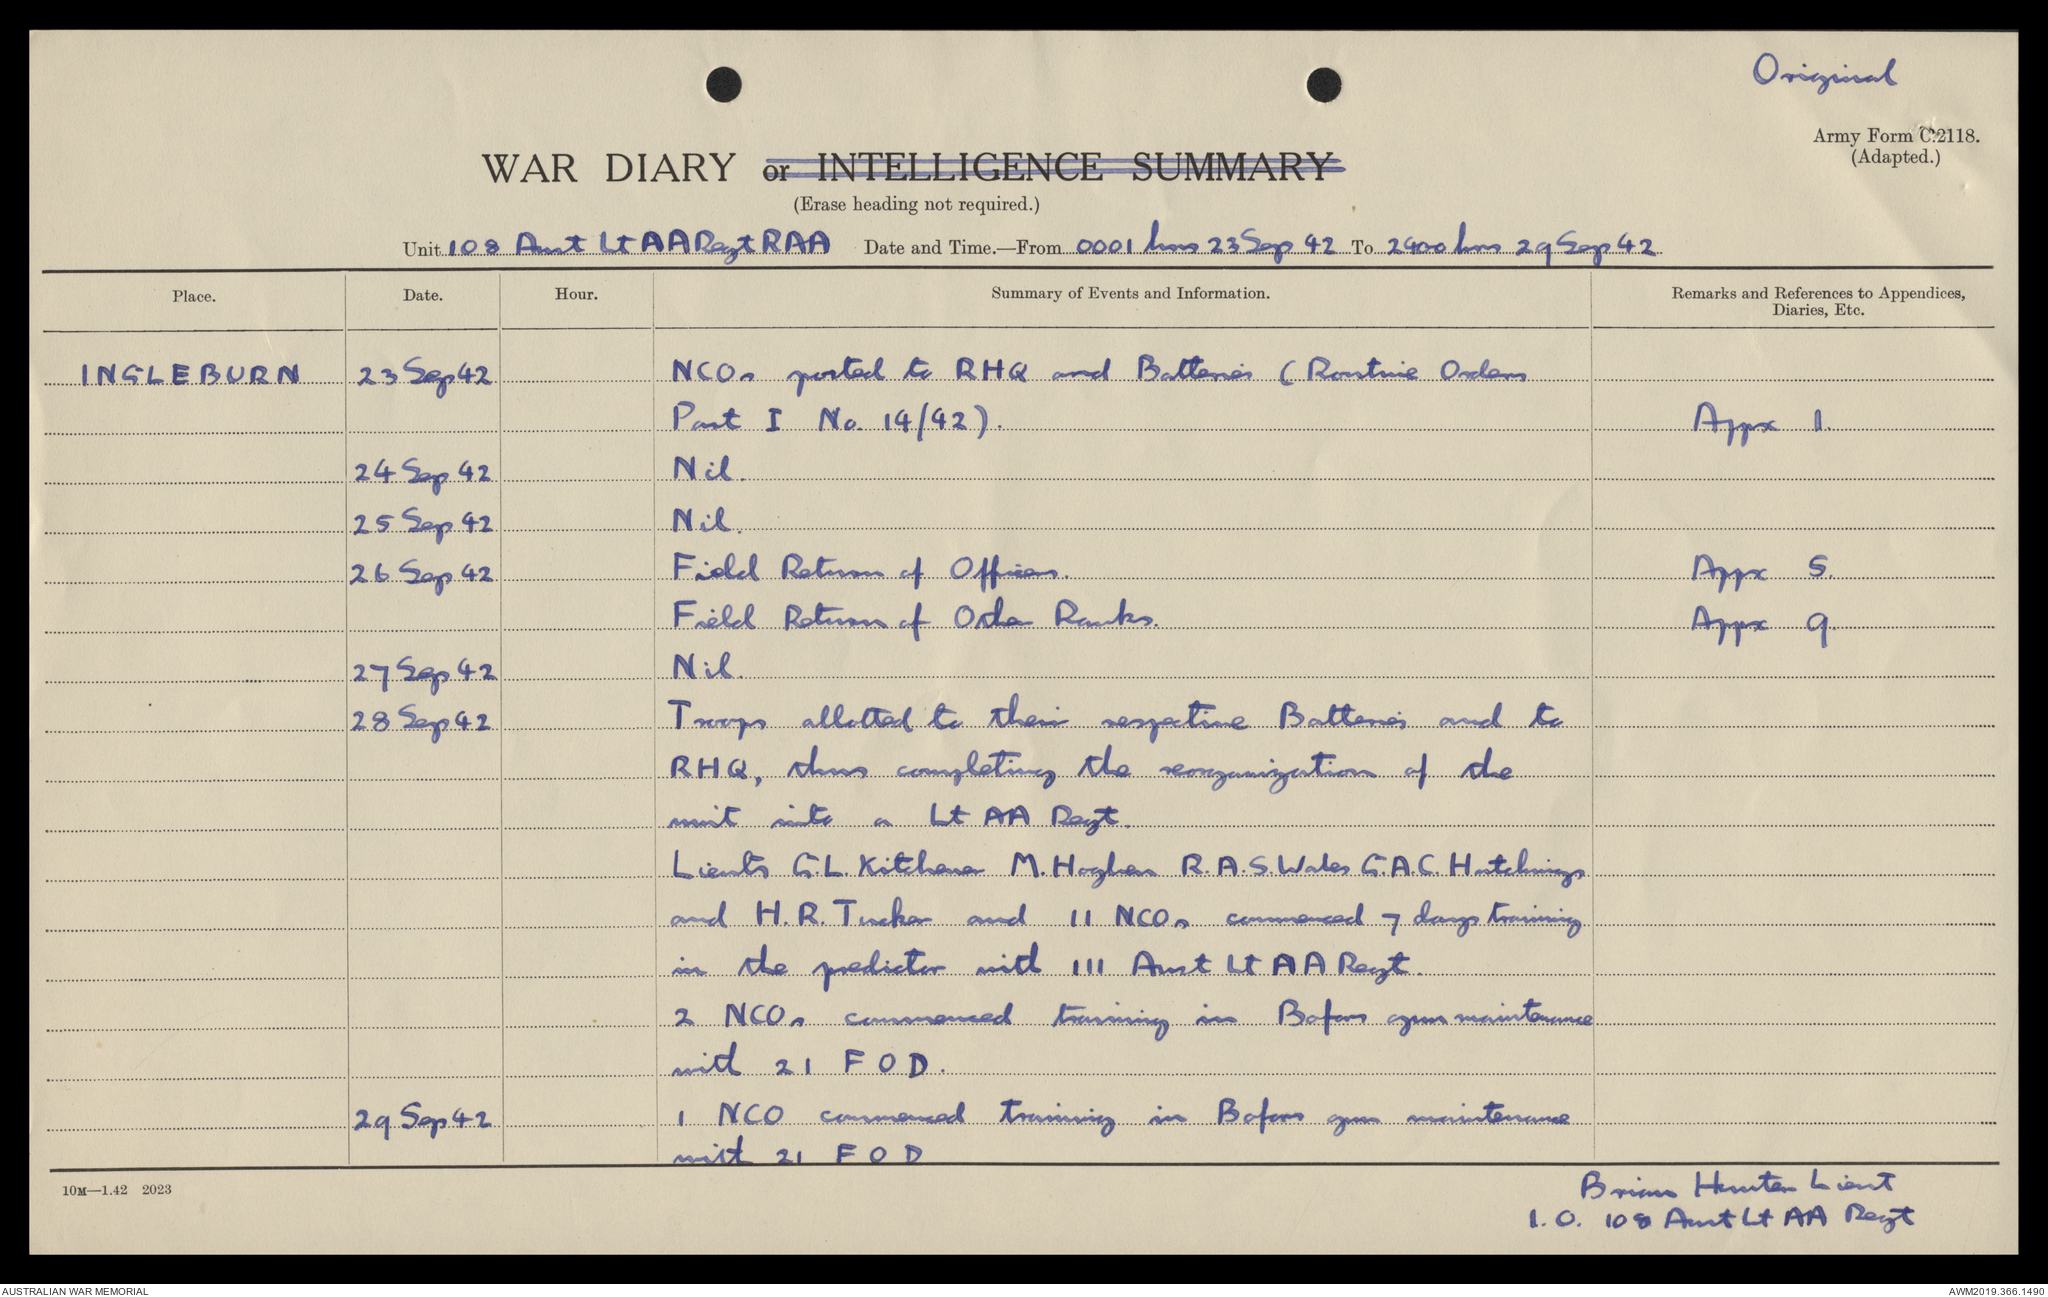 Original
Army Form C.2118.
(Adapted.)
WAR DIARY or INTELLIGENCE SUMMARY
(Erase heading not required.)
Unit 108 Aust Lt AA Regt RAA Date and Time.—From 0001 hrs 23 Sep 42 To 2400 hrs 29 Sep 42
Place. Date. Hour. Summary of Events and Information. Remarks and References to Appendices,
Diaries, Etc.
INGLEBURN 23 Sep 42 NCOs posted to RHQ and Batteries (Routine Orders
Part I No. 14/42). Appx 1.
24 Sep 42 Nil.
25 Sep 42 Nil.
26 Sep 42 Field Return of Officers. Appx 5.
Field Return of Other Ranks. Appx 9.
27 Sep 42 Nil.
28 Sep 42 Troops allotted to their respective Batteries and to
RHQ, thus completing the reorganization of the
unit into a Lt AA Regt.
Lieuts G.L. Kitchener M. Hughes R.A.S. Wales G.A.C. Hutchings
and H.R. Tucker and 11 NCOs commenced 7 days training
in the predictor with 111 Aust Lt AA Regt.
2 NCOs commenced training in Bofors gun maintenance
with 21 F O D.
29 Sep 42 1 NCO commenced training in Bofors gun maintenance
with 21 F O D
10M—1.42 2023
Brian Hunter Lieut
I.O. 108 Aust Lt AA Regt
AUSTRALIAN WAR MEMORIAL AWM2019.366.1490